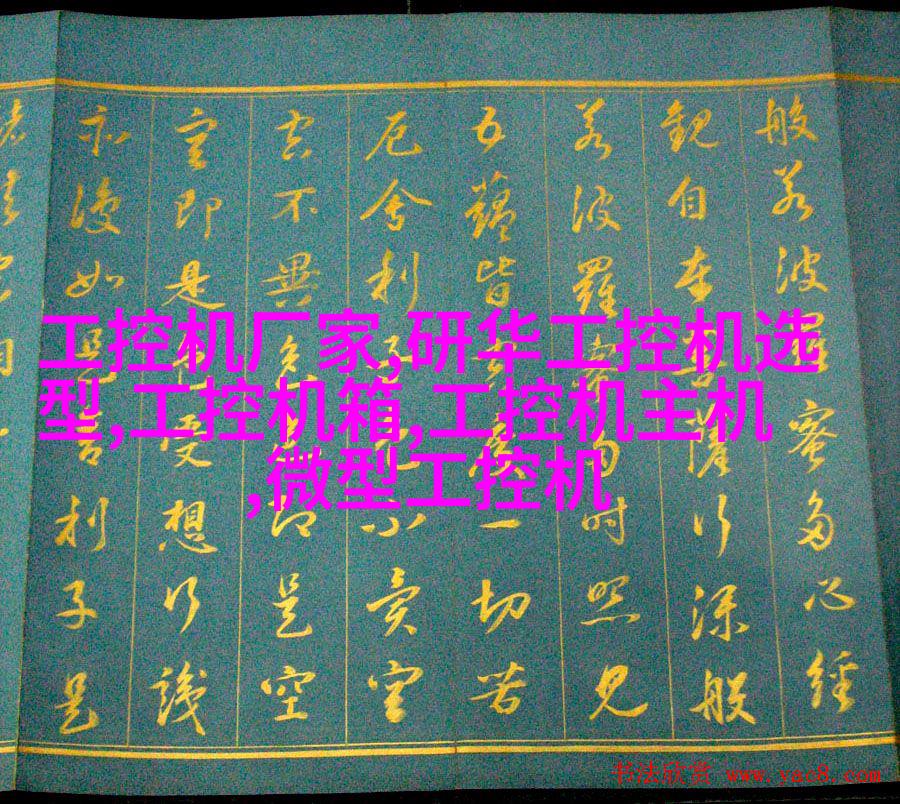 般若波羅蜜多心經
觀自在菩薩行深般
若波羅蜜多時照見
五蘊皆空度一切苦
厄舍利子色不異空
空不異色色即是空
空即是色受想行識
亦復如是舍利子是
工控机厂家,研华工控机选
型,工控机箱,工控机主机
,微型工控机
书法欣赏 www.yac8.com